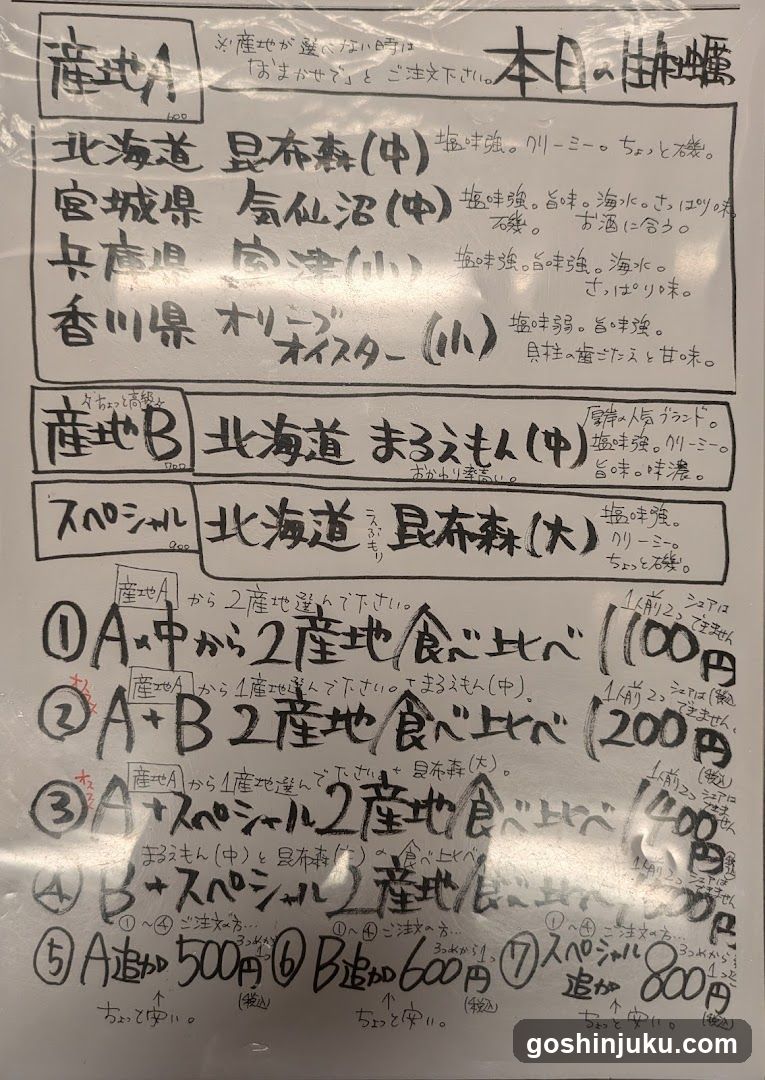 本日の生牡蠣
※産地が選べない時は
「おまかせで」とご注文下さい。
産地A
600
北海道 昆布森(中) 塩味強。クリーミー。ちょっと磯。
宮城県 気仙沼(中) 塩味強。旨味。海水。さっぱり味。
磯。 お酒に合う。
兵庫県 室津(小) 塩味強。旨味強。海水。
さっぱり味。
香川県 オリーブ
オイスター(小) 塩味弱。旨味強。
貝柱の歯ごたえと甘味。
ちょっと高級
産地B
700
北海道 まるえもん(中)
おかわり率高い。
厚岸の人気ブランド。
塩味強。クリーミー。
旨味。味濃。
スペシャル
900
北海道 昆布森(大)
こんぶもり
塩味強。
クリーミー。
ちょっと磯。
産地A から2産地選んで下さい。
1人前2つ シェアはできません
①Aの中から2産地食べ比べ 1100円
(税込)
オススメ
産地A から1産地選んで下さい。+まるえもん(中)。
1人前2つ シェアはできません。
②A+B 2産地食べ比べ 1200円
(税込)
オススメ
産地A から1産地選んで下さい。+昆布森(大)。
1人前2つ シェアはできません
③A+スペシャル2産地食べ比べ 1400円
まるえもん(中)と昆布森(大)の食べ比べ
1人前2つ シェアはできません
④B+スペシャル2産地食べ比べ
①~④ご注文の方…
3つめから1つ
⑤A追加500円
(税込)
↑
ちょっと安い。
①~④ご注文の方…
3つめから1つ
⑥B追加600円
(税込)
↑
ちょっと安い。
①~④ご注文の方…
3つめから1つ
⑦スペシャル
追加 800円
(税込)
↑
ちょっと安い。
goshinjuku.com